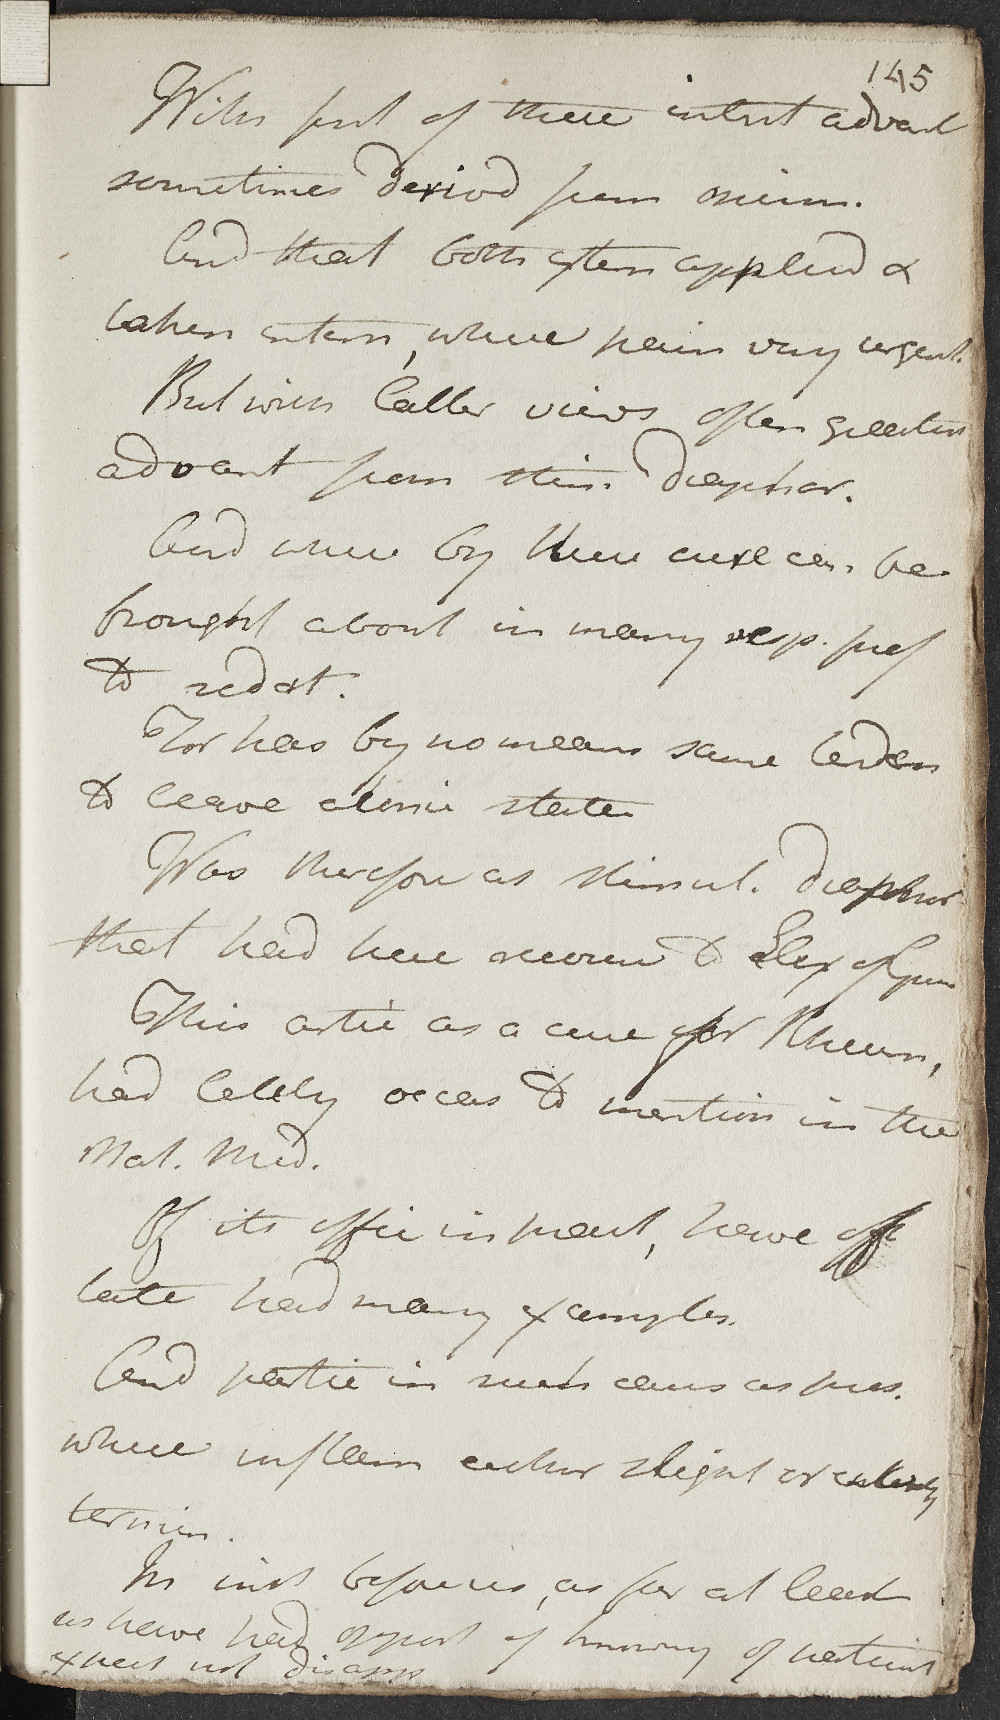 145
With first of these intent advant
sometimes derivd from opium.
And that both extern applied &
taken intern, where pain very urgent.
But with latter views often greatest
advant from stim. Diaphor.
And where by these cure can be
brought about in many resp. pref
to sedat.
For has by no means same tenden
to leave chronic state
Was therefore as stimul. diaphor
that had here recourse to Elix of Guai
This artic as a cure for Rheum,
had lately occas to mention in the
Mat. Med.
Of its effic in pract, have of
late had many examples.
And partic in such cases as pres.
where inflam either slight or entirely
termin.
In inst before us, as far at least
as have had opport of knowing of patient
expect not disapp